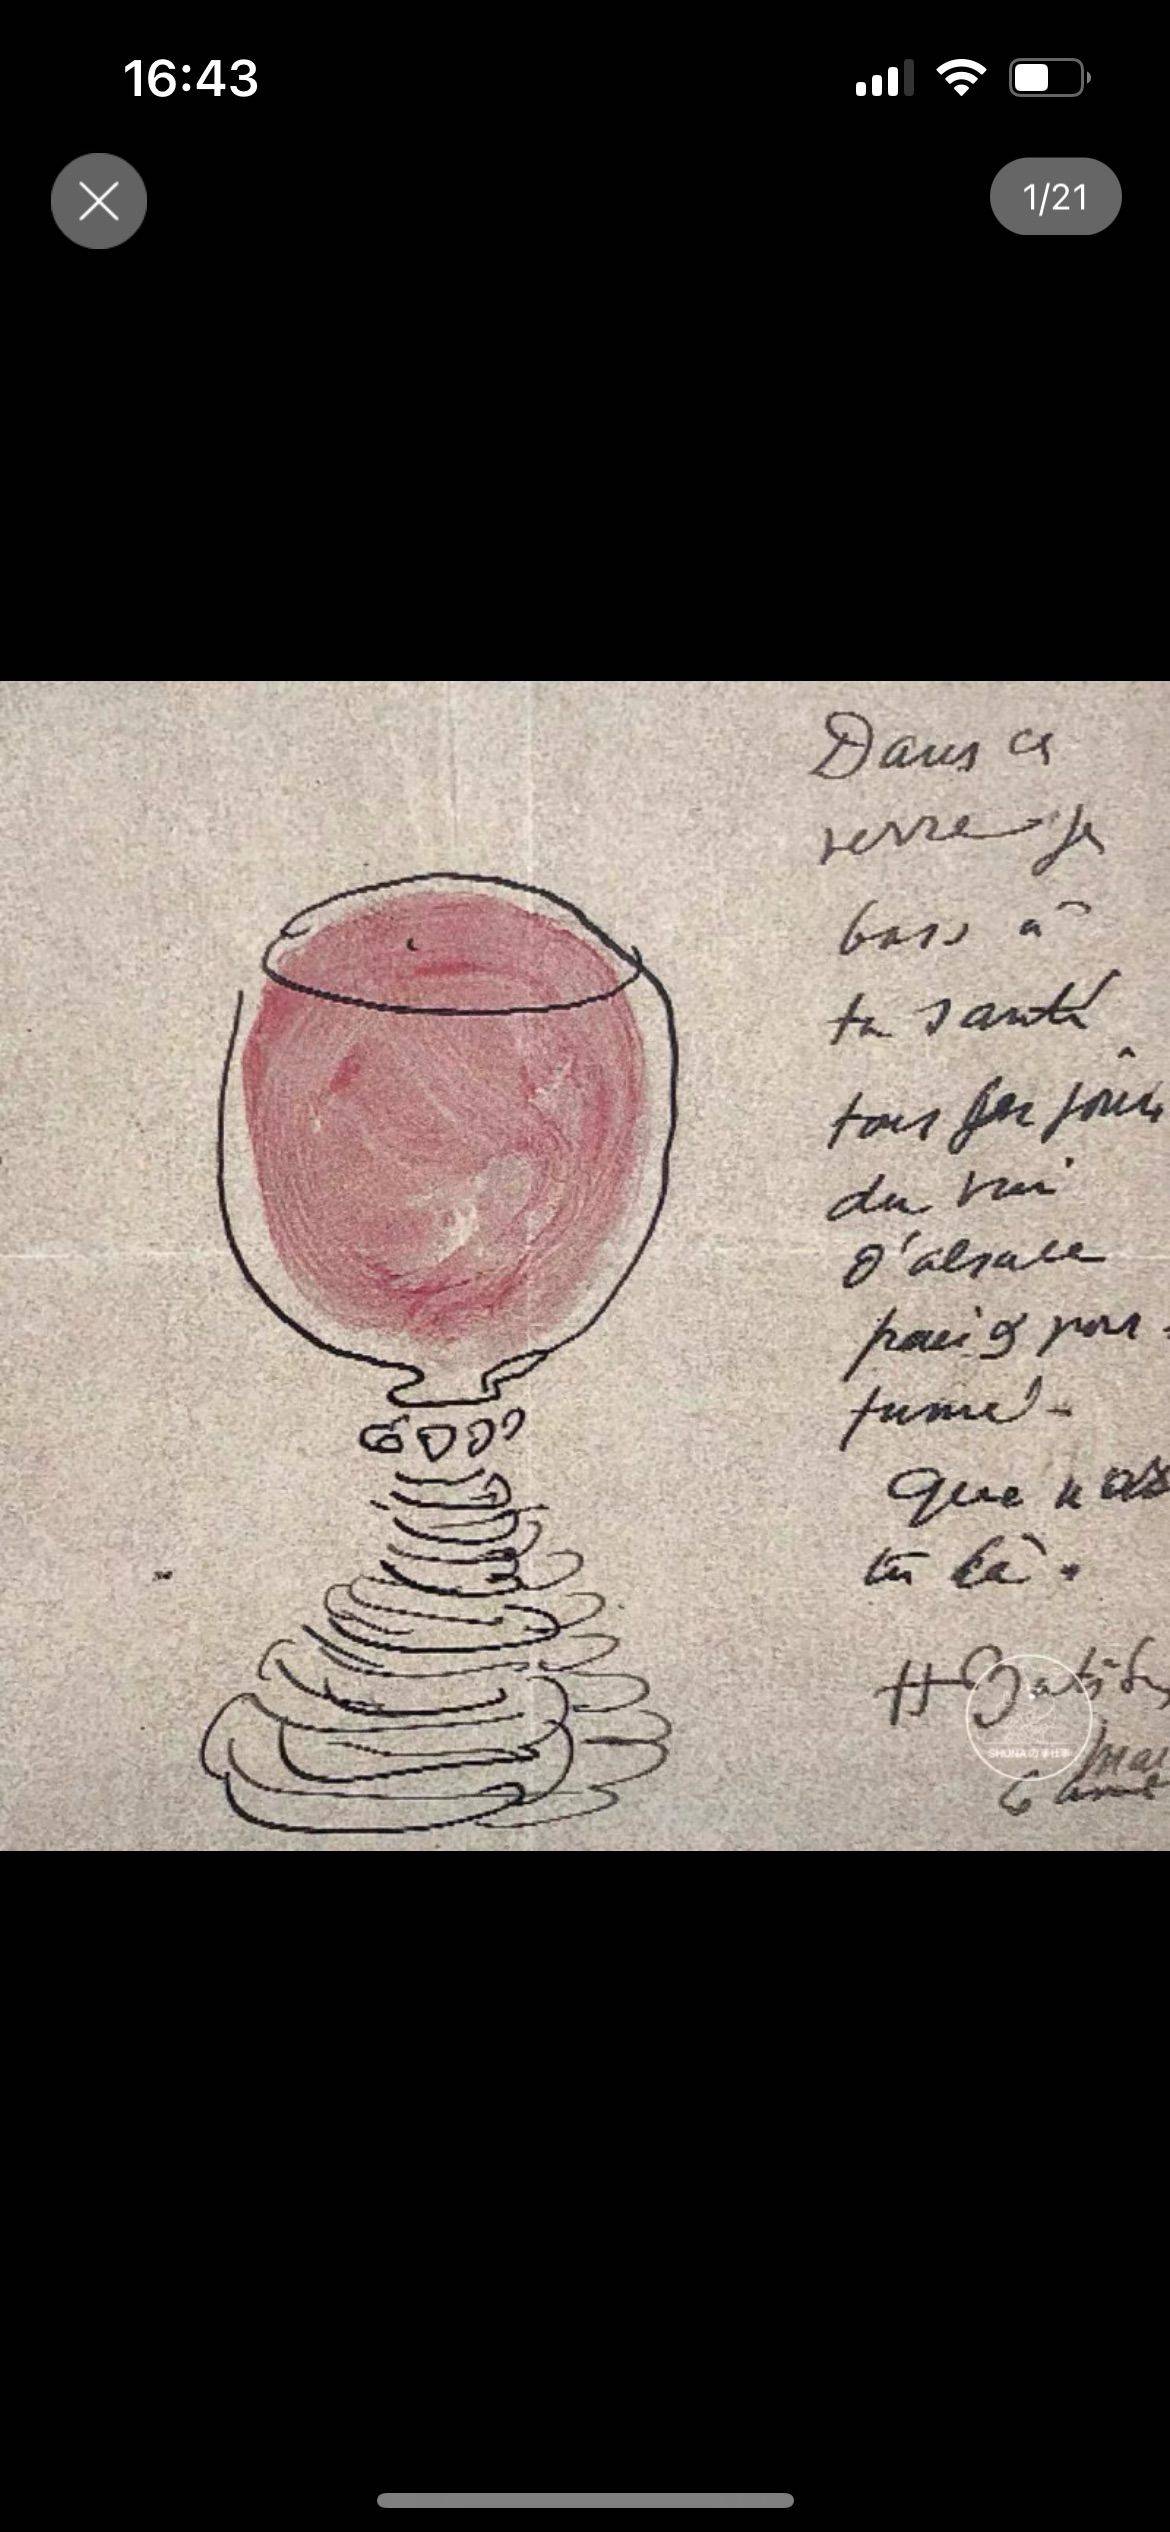 16:43
1/21
Dans ce
verre je
bois à
ta santé
tous les jours
du vin
d'alsace
frais & par
fumé-
Que n'es
tu là.
H Matisse
SHUNA